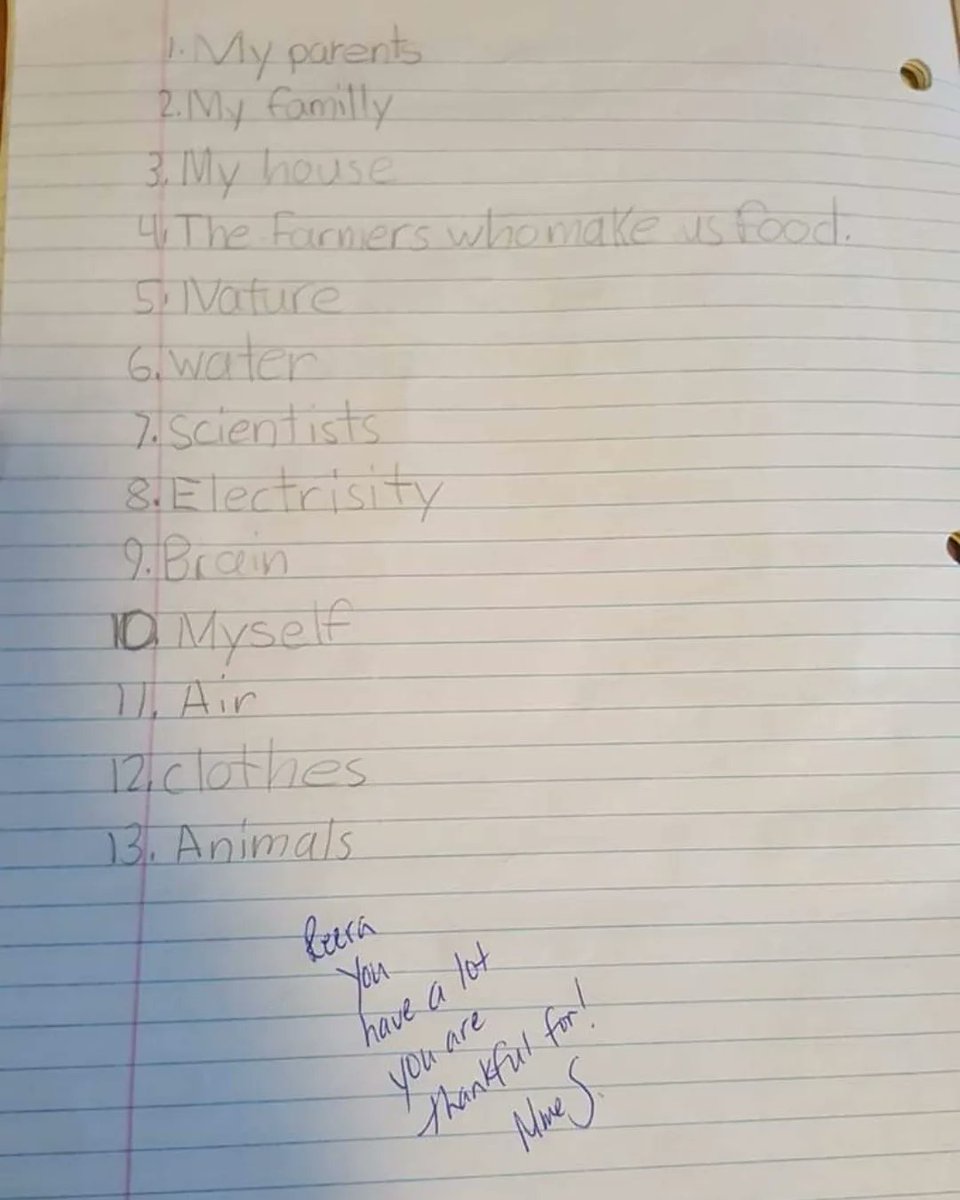 1. My parents
2. My familly
3. My house
4. The Farmers who make us food.
5. Nature
6. water
7. scientists
8. Electrisity
9. Brain
10. Myself
11. Air
12. clothes
13. Animals
You
have a lot
you are
thankful for!
Mme S.